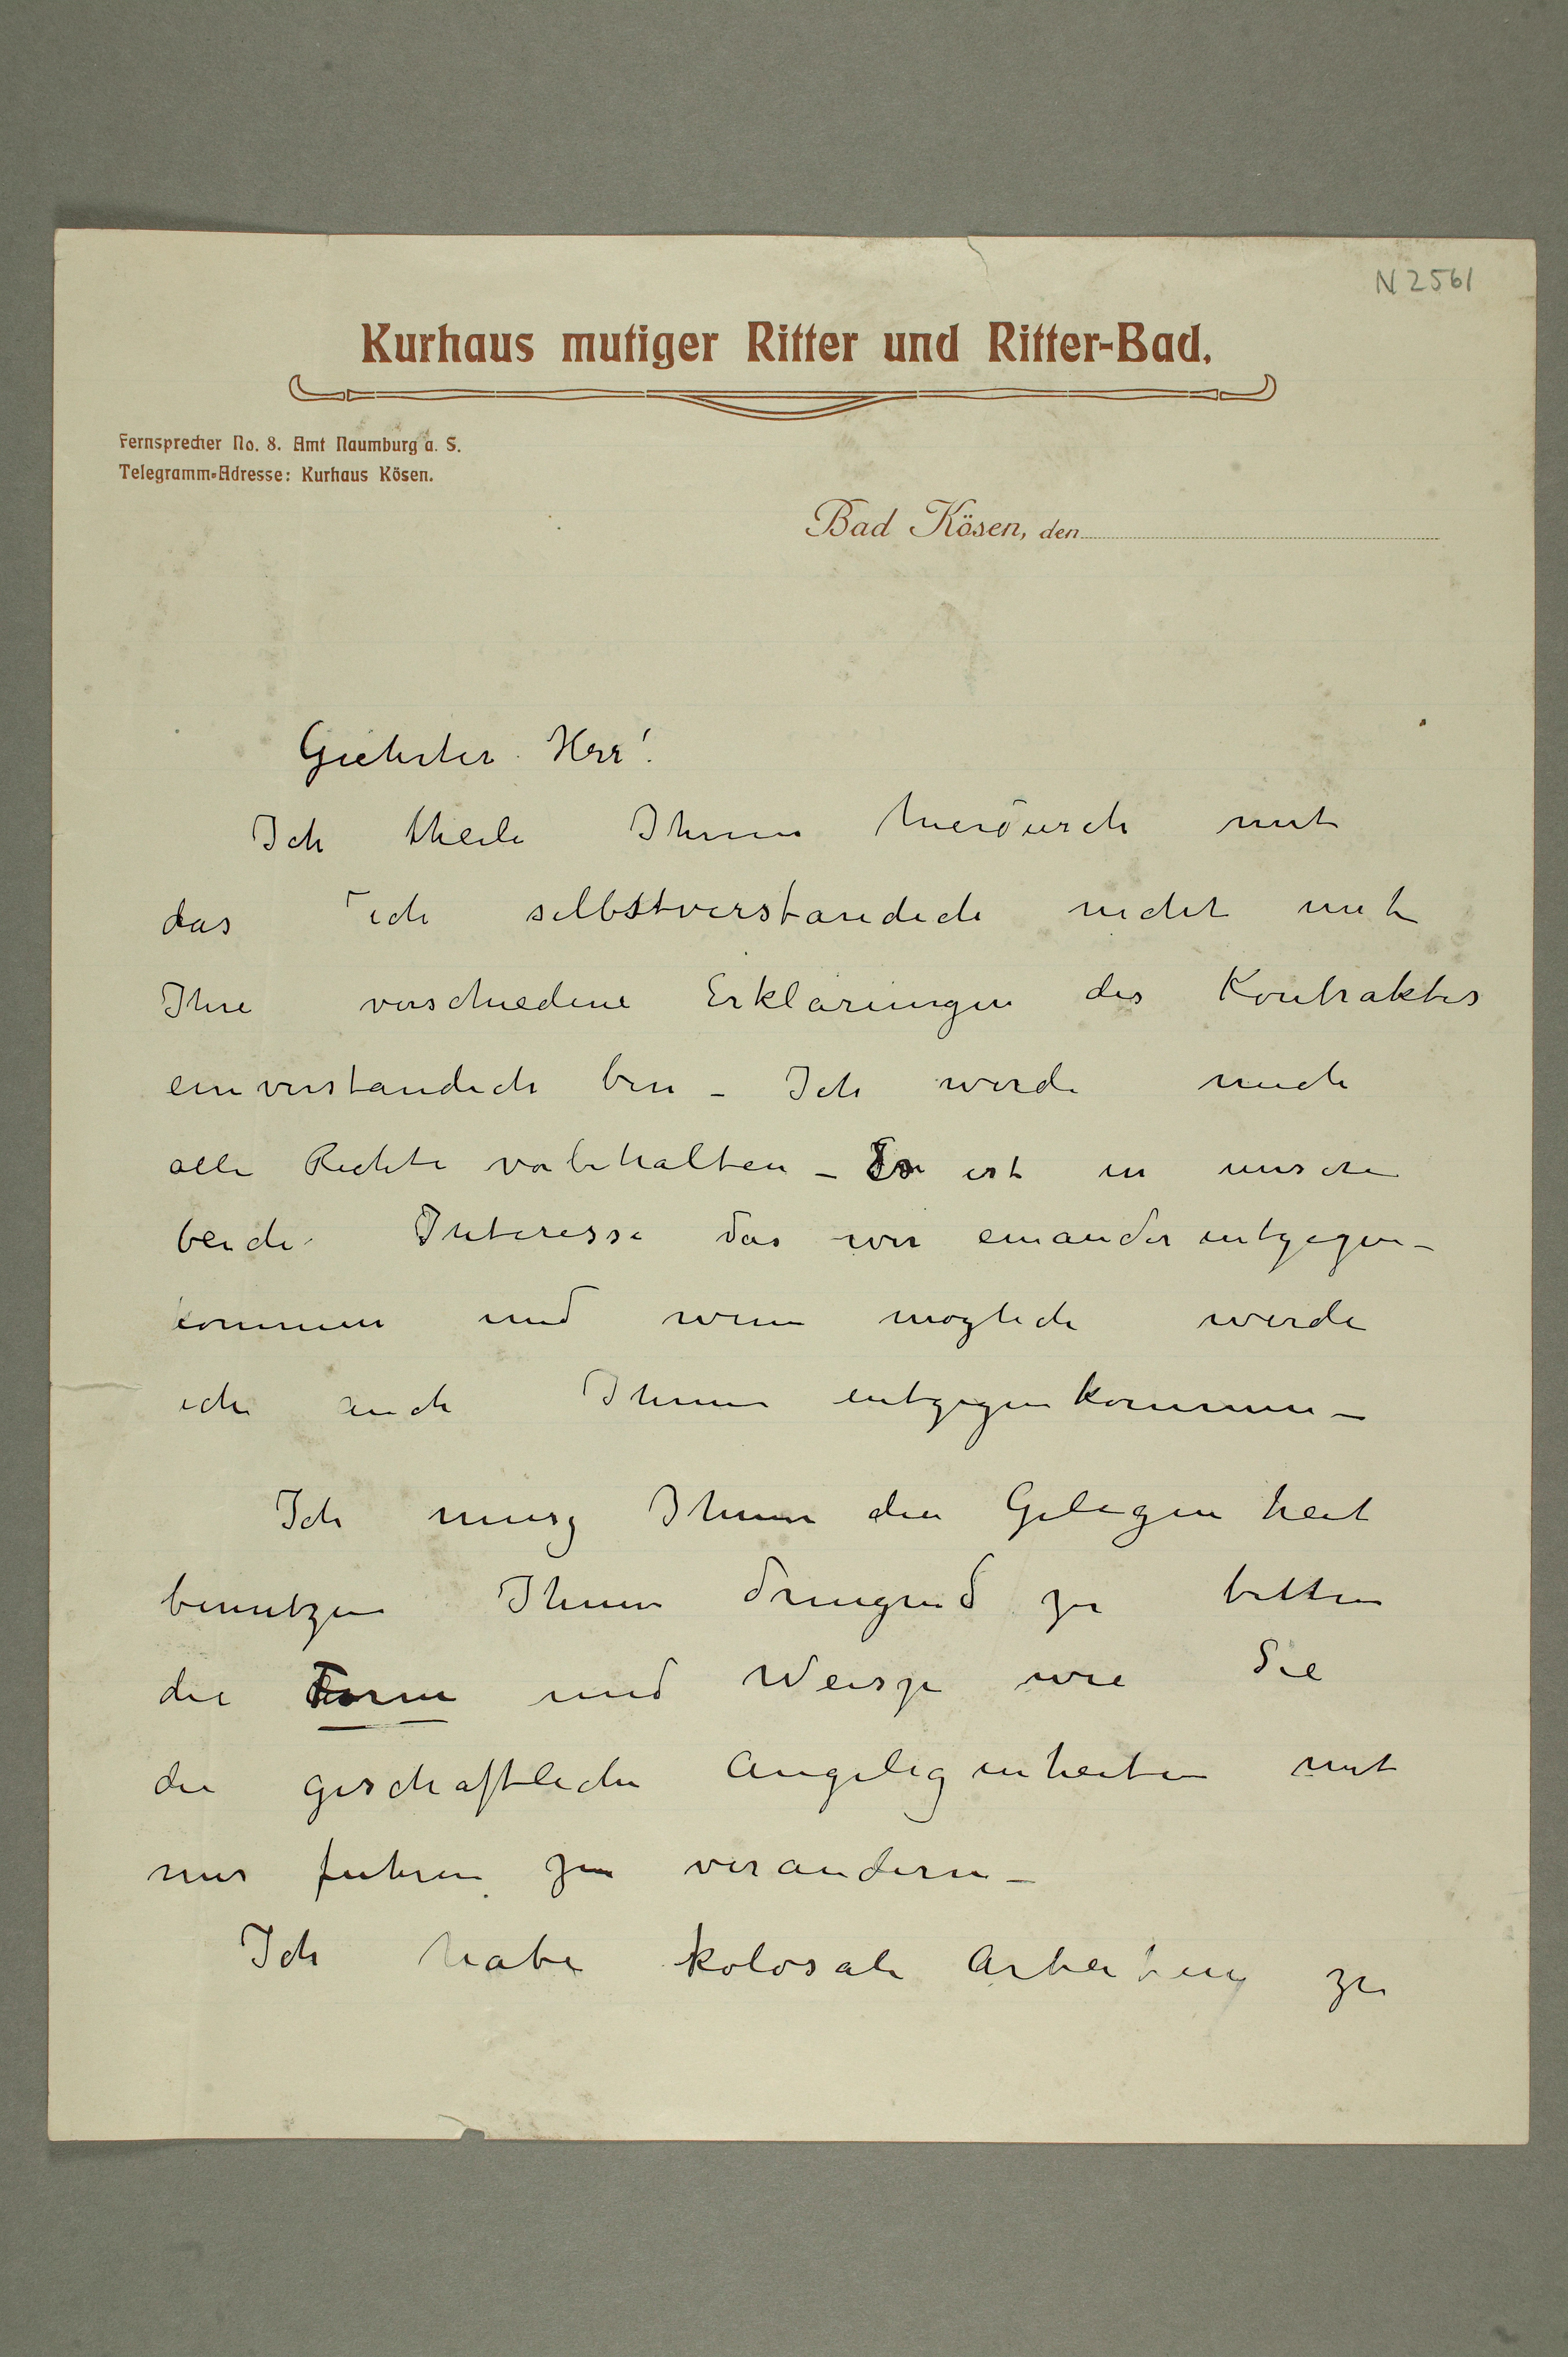 N 2561
Kurhaus mutiger Ritter und Ritter-Bad.
Fernsprecher No. 8. Amt Naumburg a. S.
Telegramm-Adresse: Kurhaus Kösen.
Bad Kösen, den
Geehrter Herr!
Ich theile Ihnen hierdurch mit
das ich selbstverstandich nicht mit
Ihre verschiedene Erklärungen des Kontraktes
einverstandich bin – Ich werde mich
alle Rechte vorbehalten – Es ist in unsere
beide Interesse das wir einander entgegen-
kommen und wenn moglich werde
ich auch Ihnen entgegenkommen –
Ich musz Ihnen die Gelegenheit
benutzen Ihnen dringend zu bitten
die Form und Weisze wie Sie
die geschaftliche Angelegenheiten mit
mir fuhren zu verandern –
Ich habe kolosale Arbeiten zu